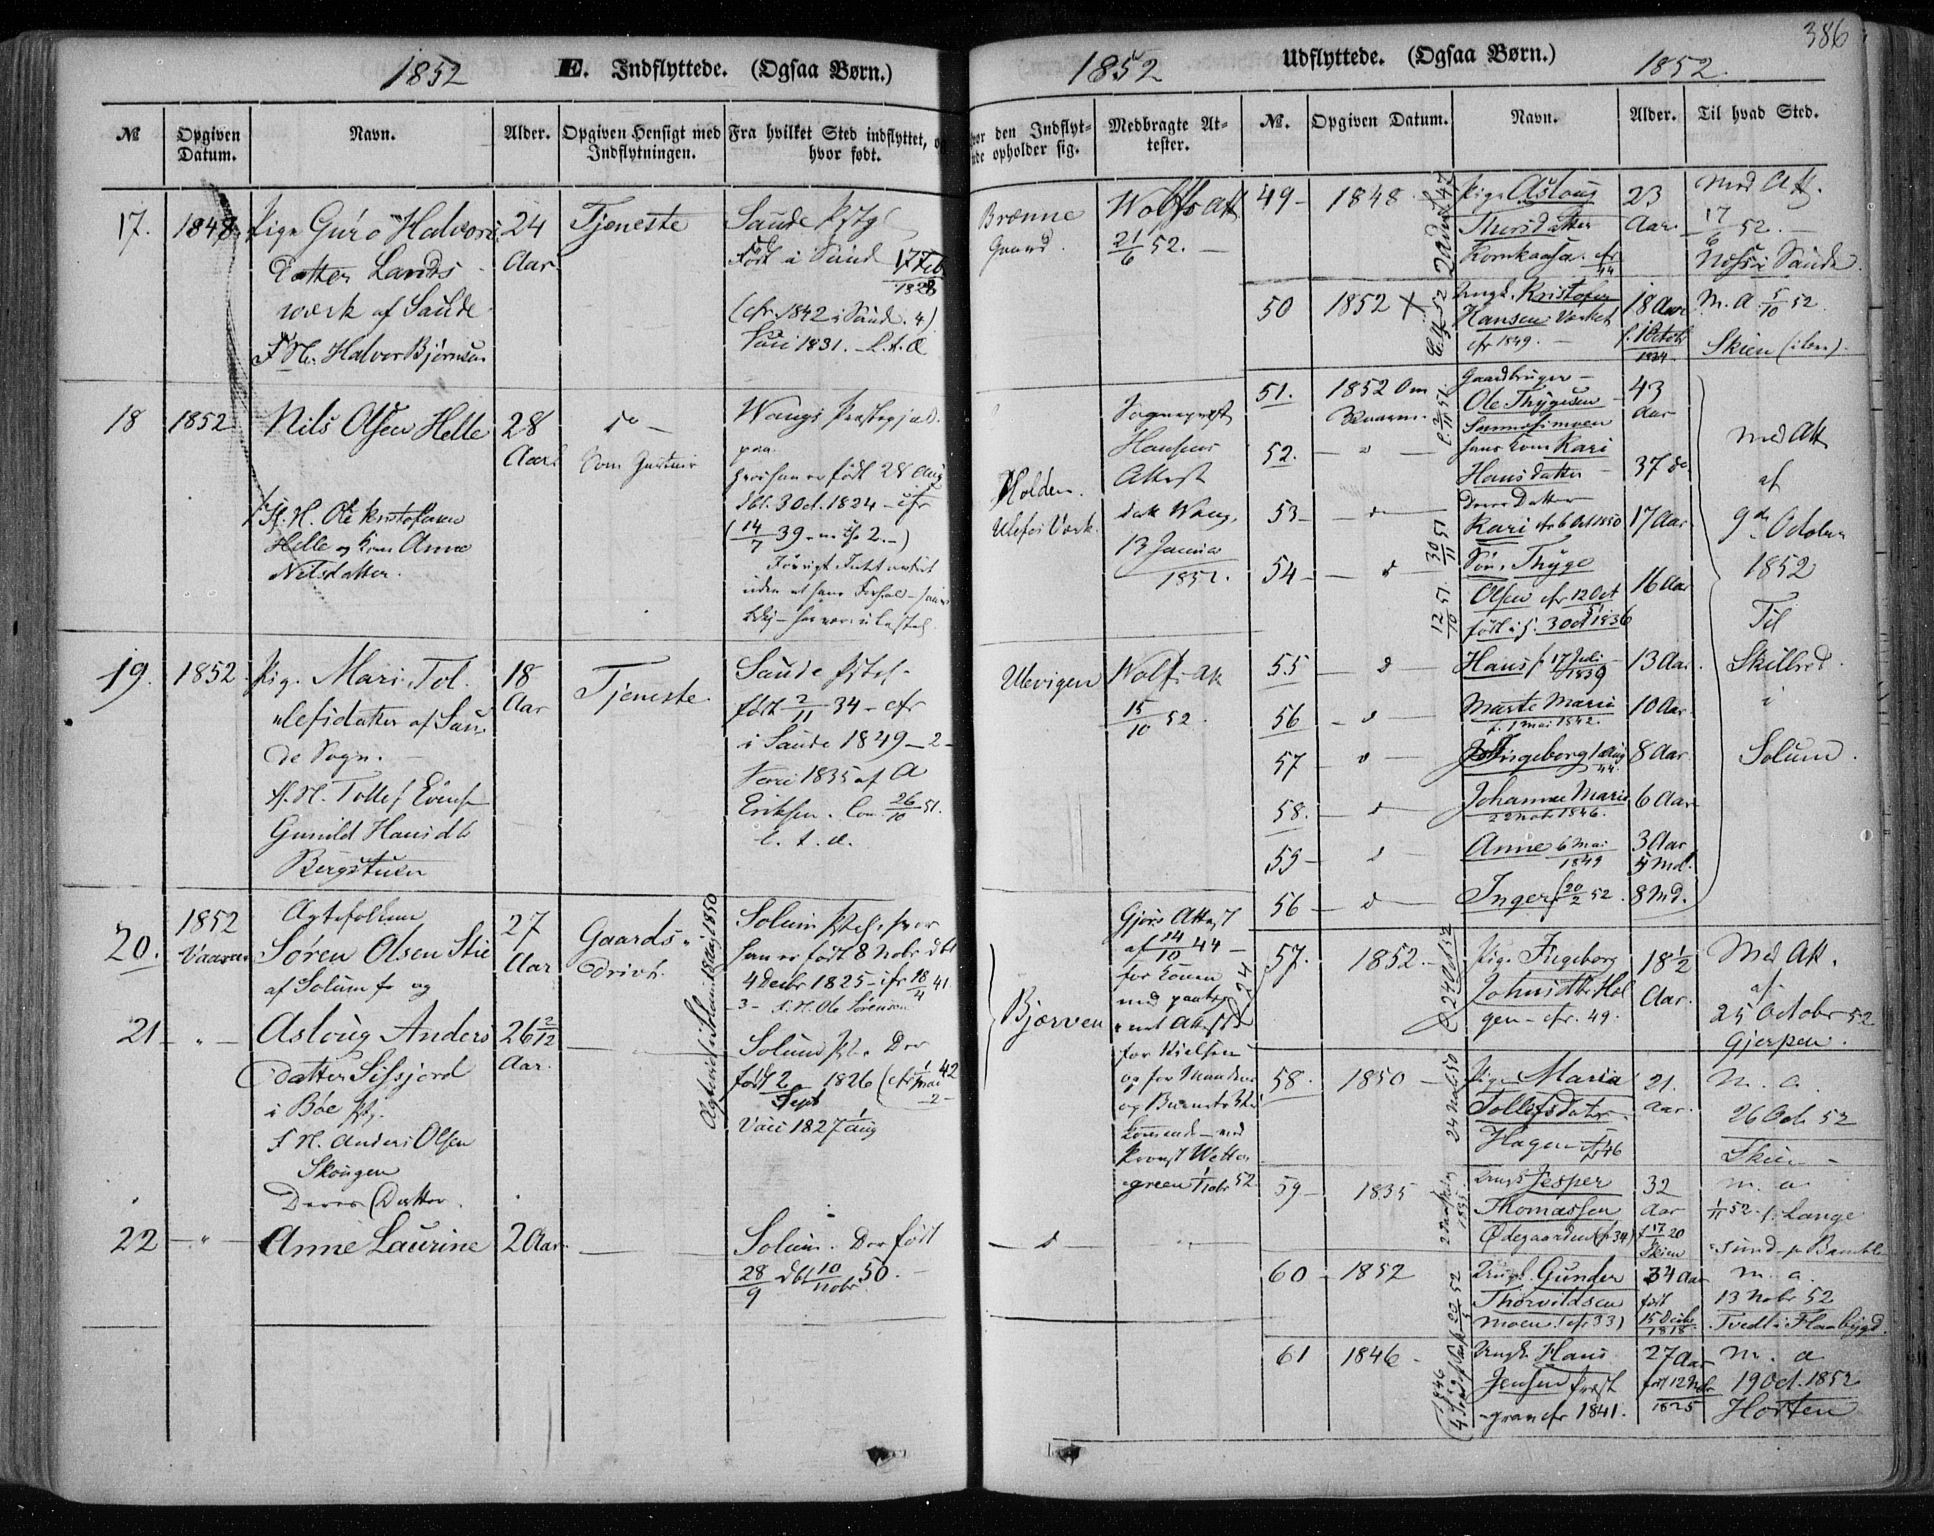 1852
E. Indflyttede. (Ogsaa Børn.)
1852
Udflyttede. (Ogsaa Børn.)
1852.
386
№
Opgiven Datum.
Navn.
Alder.
Opgiven Hensigt med Indflytningen.
Fra hvilket Sted indflyttet, og hvor født.
17.
1848
Pige Guro Halvors
datter Lands
værk af Saude
F. N. Halvor Bjørnsen
24
Aar
Tjeneste
Saude Pstgj
Født i Saude 17 Feb
1828
(cfr. 1842 i Saude. 4)
Vacc 1831. L. t. d
18
1852
Nils Olsen Helle
F. N. Ole Kristofersen
Helle og Kone Anne
Nilsdatter.
28
Aar
do —
Wangs Præstegjæld.
hvor han er født 28 Aug
dbt. 3 Oct. 1824 – cfr
(14/7 39 – No 2. –)
19.
1852
Pige Mari Tol
lefsdatter af Sau
de Sogn.
F. N. Tollef Evens
Gunild Hansdt
Bergstuen
18
Aar
Tjeneste.
Saude Pstgj. –
født 2/11 34 – cfr
i Saude 1849 – 2 –
Vacc 1835 af A
Eriksen. Con. 26/10 51.
l. t. d.
20.
1852
Vaaren
Ægtefolkene
Søren Olsen Stie
af Solum f og
27
Aar
Gaards
drivt.
Solum Pstgj. hvor
han er født 8 Nobr dbt
4 Decbr 1825 – cfr 18/4 41
3 – F. N. Ole Sørensen
21
— " —
Aslaug Anders
datter Sissjord
i Bøe Pstg.
F. N. Anders Olsen
Skougen
Deres Datter
26 2/12
Aar.
Solum Pst. Der
født 2 Sept 1826 (cfr 1 Mai 42
2 –
Vacc 1827 Aug
22
— " —
Anne Laurine
2 Aar
Solum. Der født
28/9 dbt 10 Nobr 50. –
Hvor den Indflyttede opholder sig.
Medbragte Attester.
Brænne
Gaard.
Wolfs Att
21/6 52. —
Holden.
Ulefos Værk.
Sognepræst
Hansens
Attest
dat Wang,
13 Januar
1852.
Ulevigen
Wolfs Att
15/10 52.
Bjærven
Gjørs Attest
af 14/10 44 –
for Konen
med paateg
for Nielsen
og for Manden
Provst Wetter
green 1 Nobr 52
— d —
№.
Opgiven Datum.
Navn.
Alder.
Til hvad Sted.
49 –
1848.
Pige Aslaug
Thorsdatter
Kornkaasa cfr
44
23
Aar.
Med Att.
17/6 52. —
Næs i Saude.
50
1852 X
Ungk. Kristofer
Hansen Værket
cfr 1849. –
18 Aar
f. 1 Octob
1834
M. A. 5/10 52
Skien (ibn).
51.
1852 Om
Vaaren.
Gaardbruger –
Ole Thygesen
43
Aar
52.
— " —
hans Kone Kari
Hansdatter –
37 do
53 –
— d —
Deres Datter
Kari cfr 6 Oct 1850
17 Aar
54 –
— d —
Søn Thyge
Olsen cfr 12 Oct
51
født i S. 3 Oct 1836
16 Aar
55
— d —
Hans f. 17 Juli
1839
13 Aar.
56
— d —
Marte Marie
f. 1 Mai 1842.
10 Aar.
57
— d —
Ingeborg 1 Aug
44.
8 Aar
58.
— d —
Johanne Marie
22 Nob. 1846.
6 Aar
59 –
— d —
Anne 6 Mai
1849
3 Aar
5 Md.
56
— d —
Inger f. 20/2 52.
8 Md.
Med Att
af
9de October
1852
Til
Skilbred.
i
Solum.
57.
1852. –
Pige Ingeborg
Johnsdtr Hol
gen – cfr. 49.
18½
Aar.
Med Att.
af
25 Octobr 52
Gjerpen.
58.
1850 –
Pige Maria
Tollefsdatter
Hagen cfr 46
21.
Aar.
M. a.
26 Oct. 52
Skien –
59 –
1835
Ungk. Jesper
Thomassen
Ødegaarden (cfr 34)
32
Aar
f. 17 20
Skien
M. a
1/11 52. f. Lange
sund – p Bamble
60 –
1852
Ungk. Gunder
Thorvildsen
Moen. (cfr. 33)
34 Aar
født
15 Decbr
1818.
M. a.
13 Nobr 52
Tvedt i Flaabygd.
61
1846 –
Ungk. Hans
Jensen Præst
gran cfr 1841.
27 Aar
født 12 Nobr
1825
M. a
19 Oct. 1852
Horten